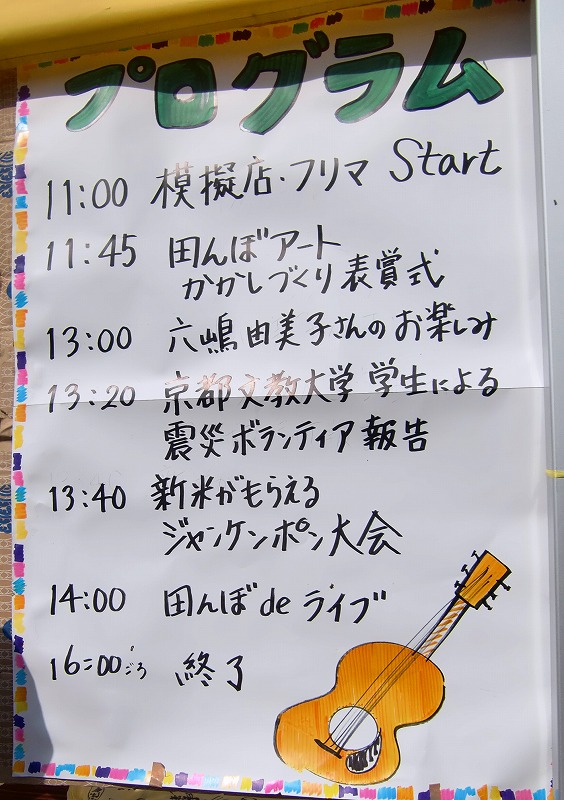 プログラム
11:00 模擬店・フリマ Start
11:45 田んぼアート
かかしづくり表賞式
13:00 六嶋由美子さんのお楽しみ
13:20 京都文教大学 学生による
震災ボランティア報告
13:40 新米がもらえる
ジャンケンポン大会
14:00 田んぼdeライブ
16:00ごろ 終了